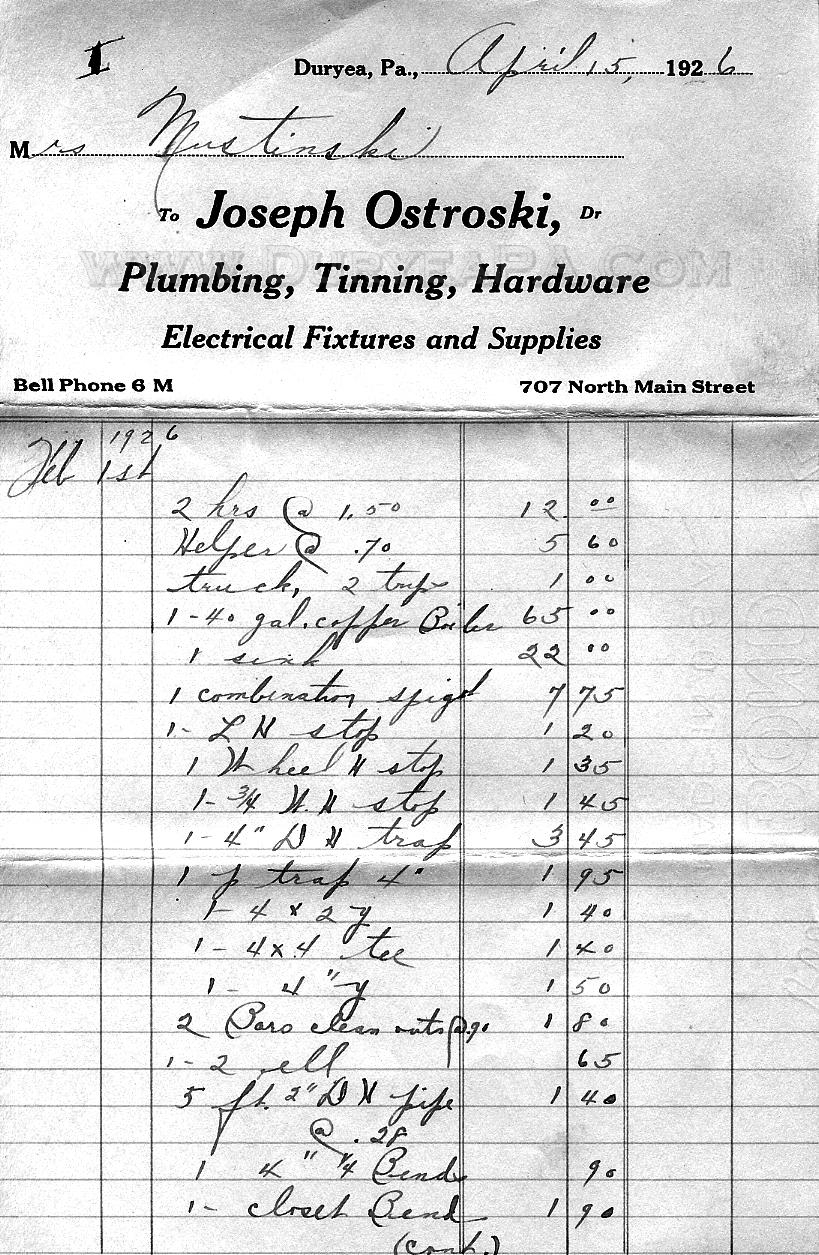 I
Duryea, Pa., April 15, 1926
Mrs Mustinski
To Joseph Ostroski, Dr
www.DuryeaPa.Com
Plumbing, Tinning, Hardware
Electrical Fixtures and Supplies
Bell Phone 6 M 707 North Main Street
1926
Feb 1st
2 hrs @ 1.50 12 00
Helper @ .70 5 60
truck, 2 trips 1 00
1-40 gal. copper Boiler 65 00
1 sink 22 00
1 combination spigot 7 75
1- L H stop 1 20
1 Wheel H stop 1 35
1- 3/4 W. H stop 1 45
1- 4" D H trap 3 45
1 p trap 4" 1 95
1- 4 x 2 y 1 40
1- 4 x 4 tee 1 40
1- 4" y 1 50
2 clean outs @ .90 1 80
1- 2 ell 65
5 ft. 2" D H pipe 1 40
@ .28
1 4" 1/4 Bend 90
1- closet Bend 1 90
(cont.)